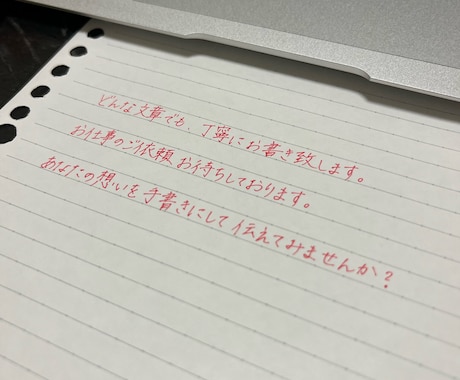 どんな文章でも、丁寧にお書き致します。
お仕事のご依頼お待ちしております。
あなたの想いを手書きにして伝えてみませんか？